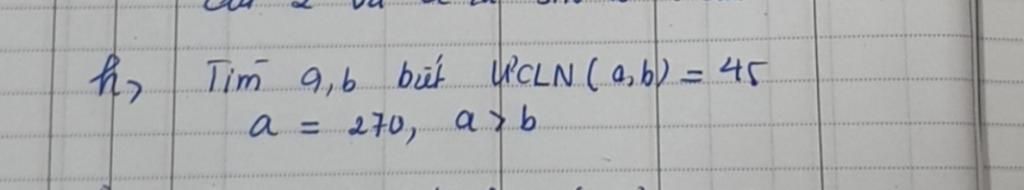 h, Tìm a,b biết ƯCLN(a,b) = 45
a = 270, a > b